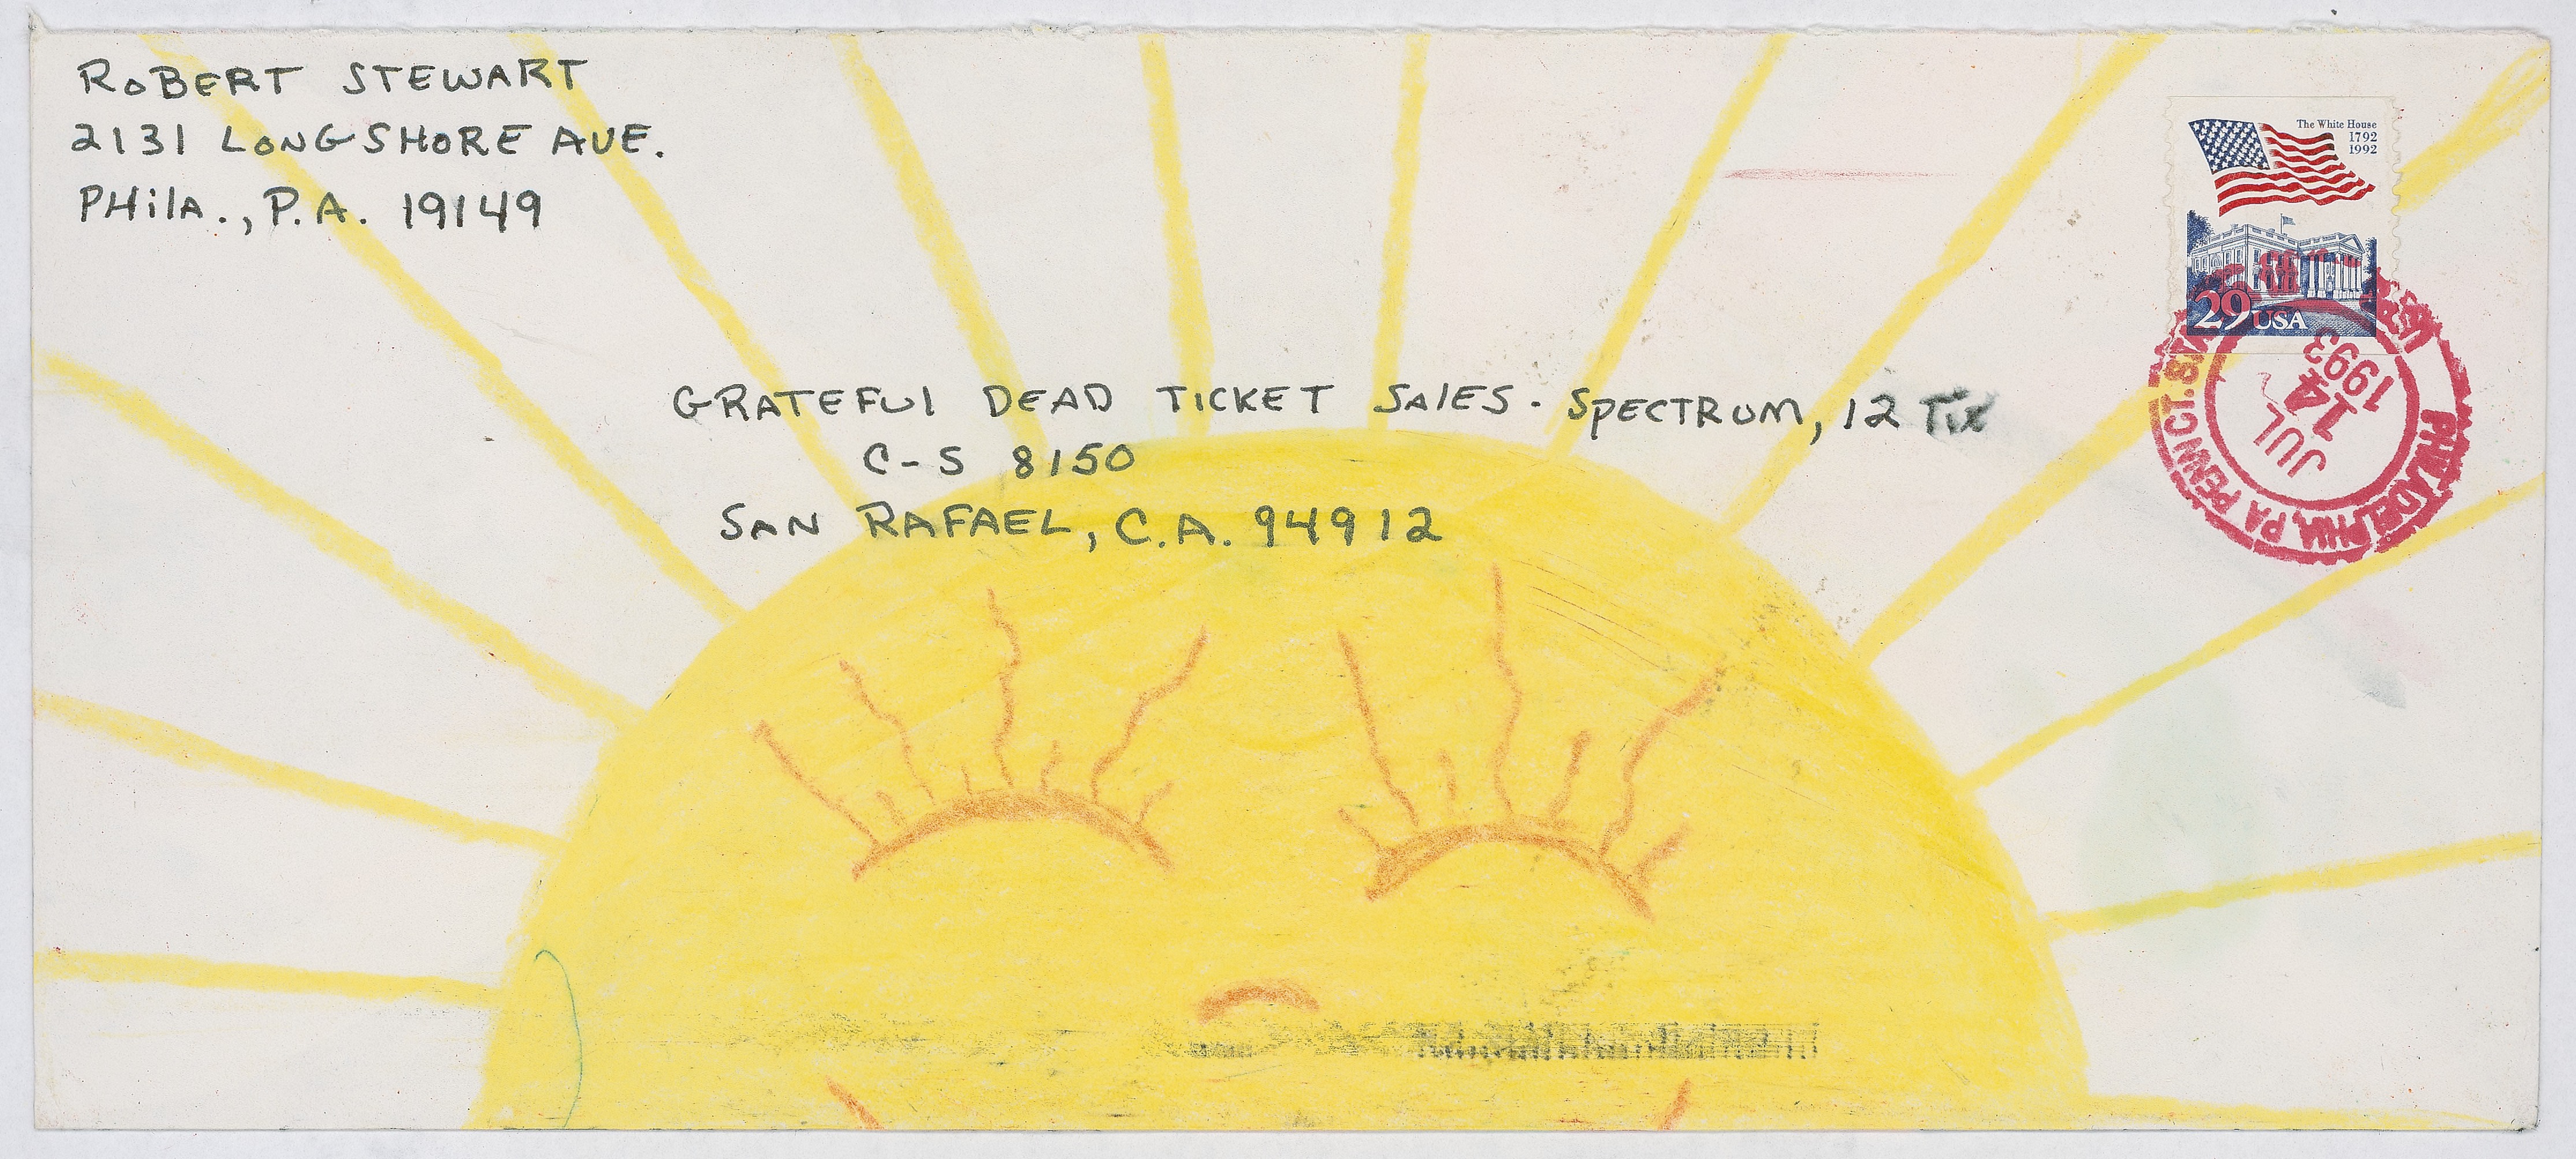 ROBERT STEWART
2131 LONGSHORE AVE.
PHilA., P.A. 19149
The White House
1792
1992
29 USA
GRATEFUl DEAD TICKET SAlES. SPECTRUM, 12 Tix
C-S 8150
SAN RAFAEL, C.A. 94912
PHILADELPHIA, PA PENN CT. STA
JUL
14
1993